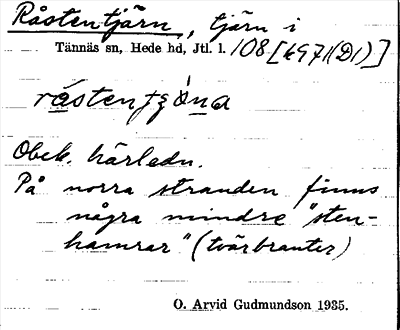 Råstentjärn, tjärn i
Tännäs sn, Hede hd, Jtl. l. 108 [k971(D1)]
Obek. härledn.
På norra stranden finns
några mindre "sten-
hamrar" (tvärbranter)
O. Arvid Gudmundson 1935.